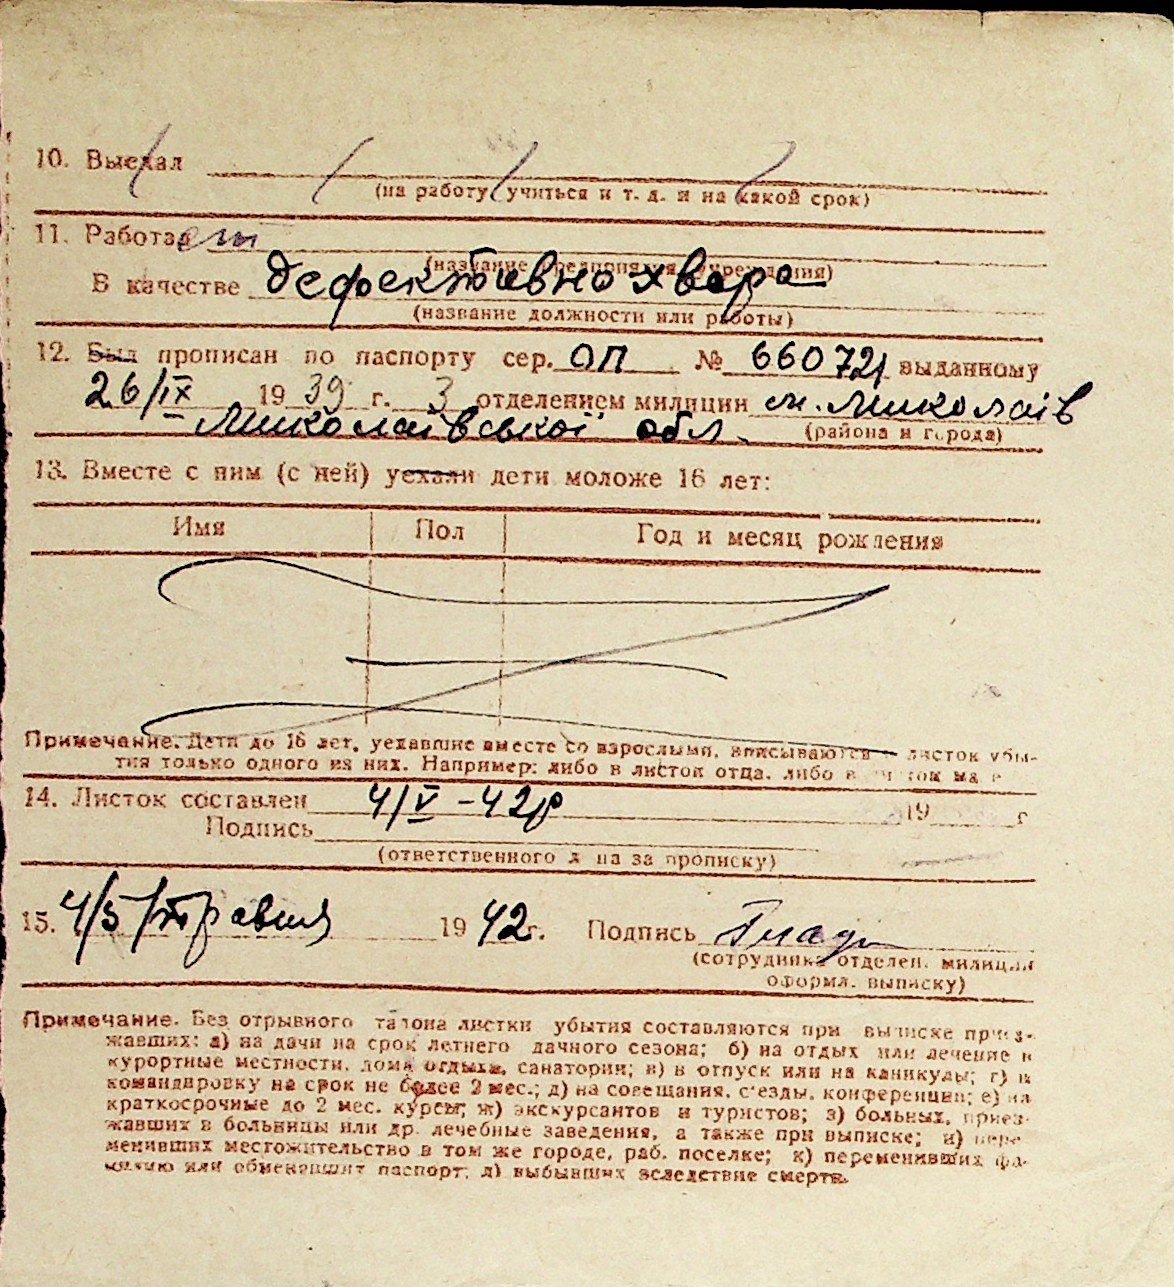 10. Выехал
(на работу, учиться и т. д. и на какой срок)
11. Работает
(название предприятия, учреждения)
В качестве дефективно хвора
(название должности или работы)
12. Был прописан по паспорту сер. ОП № 660721 выданному
26/IX 1939 г. 3 отделением милиции м. Миколаїв
Миколаївської обл. (района и города)
13. Вместе с ним (с ней) уехали дети моложе 16 лет:
Имя Пол Год и месяц рождения
Примечание. Дети до 16 лет, уехавшие вместе со взрослыми, вписываются листок убы-
тия только одного из них. Например: либо в листок отца, либо в
14. Листок составлен 4/V-42р 19 г
Подпись
(ответственного л на за прописку)
15. 4/5/травня 1942 г. Подпись
(сотрудника отделен. милиции
оформл. выписку)
Примечание. Без отрывного талона листки убытия составляются при выписке приез-
жавших: а) на дачи на срок летнего дачного сезона; б) на отдых или лечение в
курортные местности, дома отдыха, санатории; в) в отпуск или на каникулы; г) в
командировку на срок не более 2 мес.; д) на совещания, с'езды, конференции; е) на
краткосрочные до 2 мес. курсы; ж) экскурсантов и туристов; з) больных, приез-
жавших в больницы или др. лечебные заведения, а также при выписке; и) пере-
менивших местожительство в том же городе, раб. поселке; к) переменивших фа-
милию или обменявших паспорт; л) выбывших вследствие смерти.